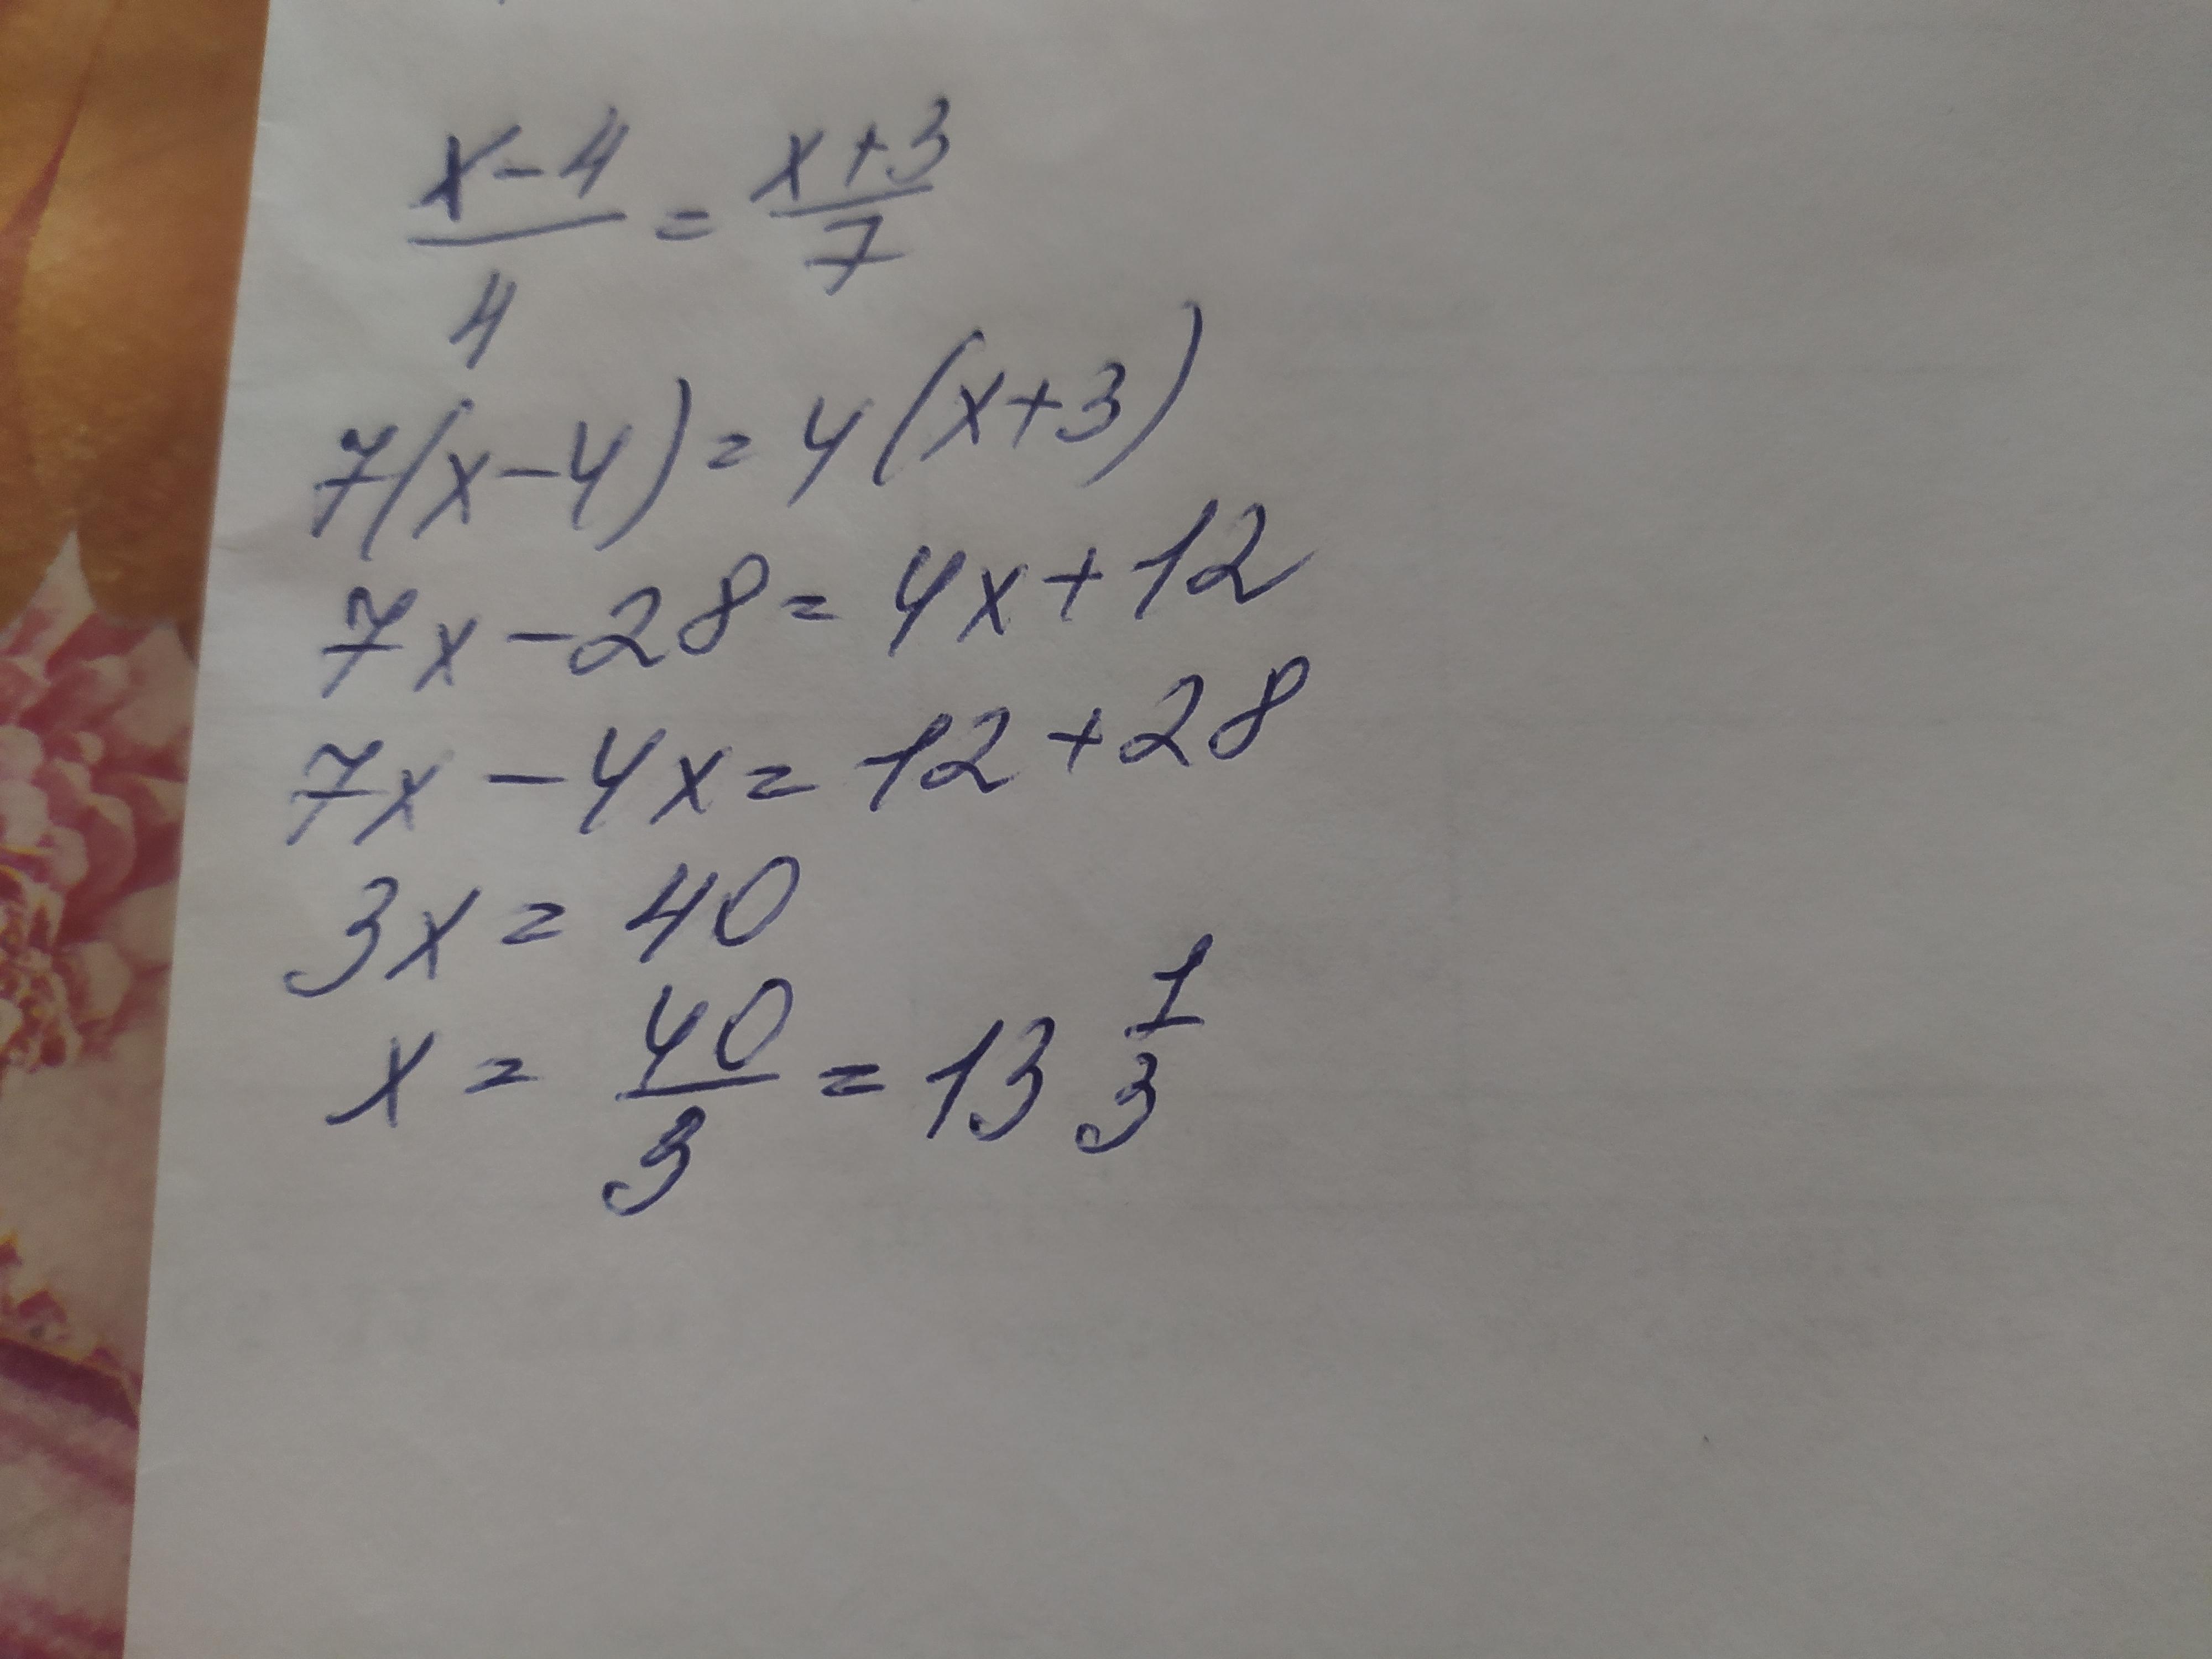 x-4/4 = x+3/7
7(x-4) = 4(x+3)
7x-28 = 4x+12
7x-4x = 12+28
3x = 40
x = 40/3 = 13 1/3